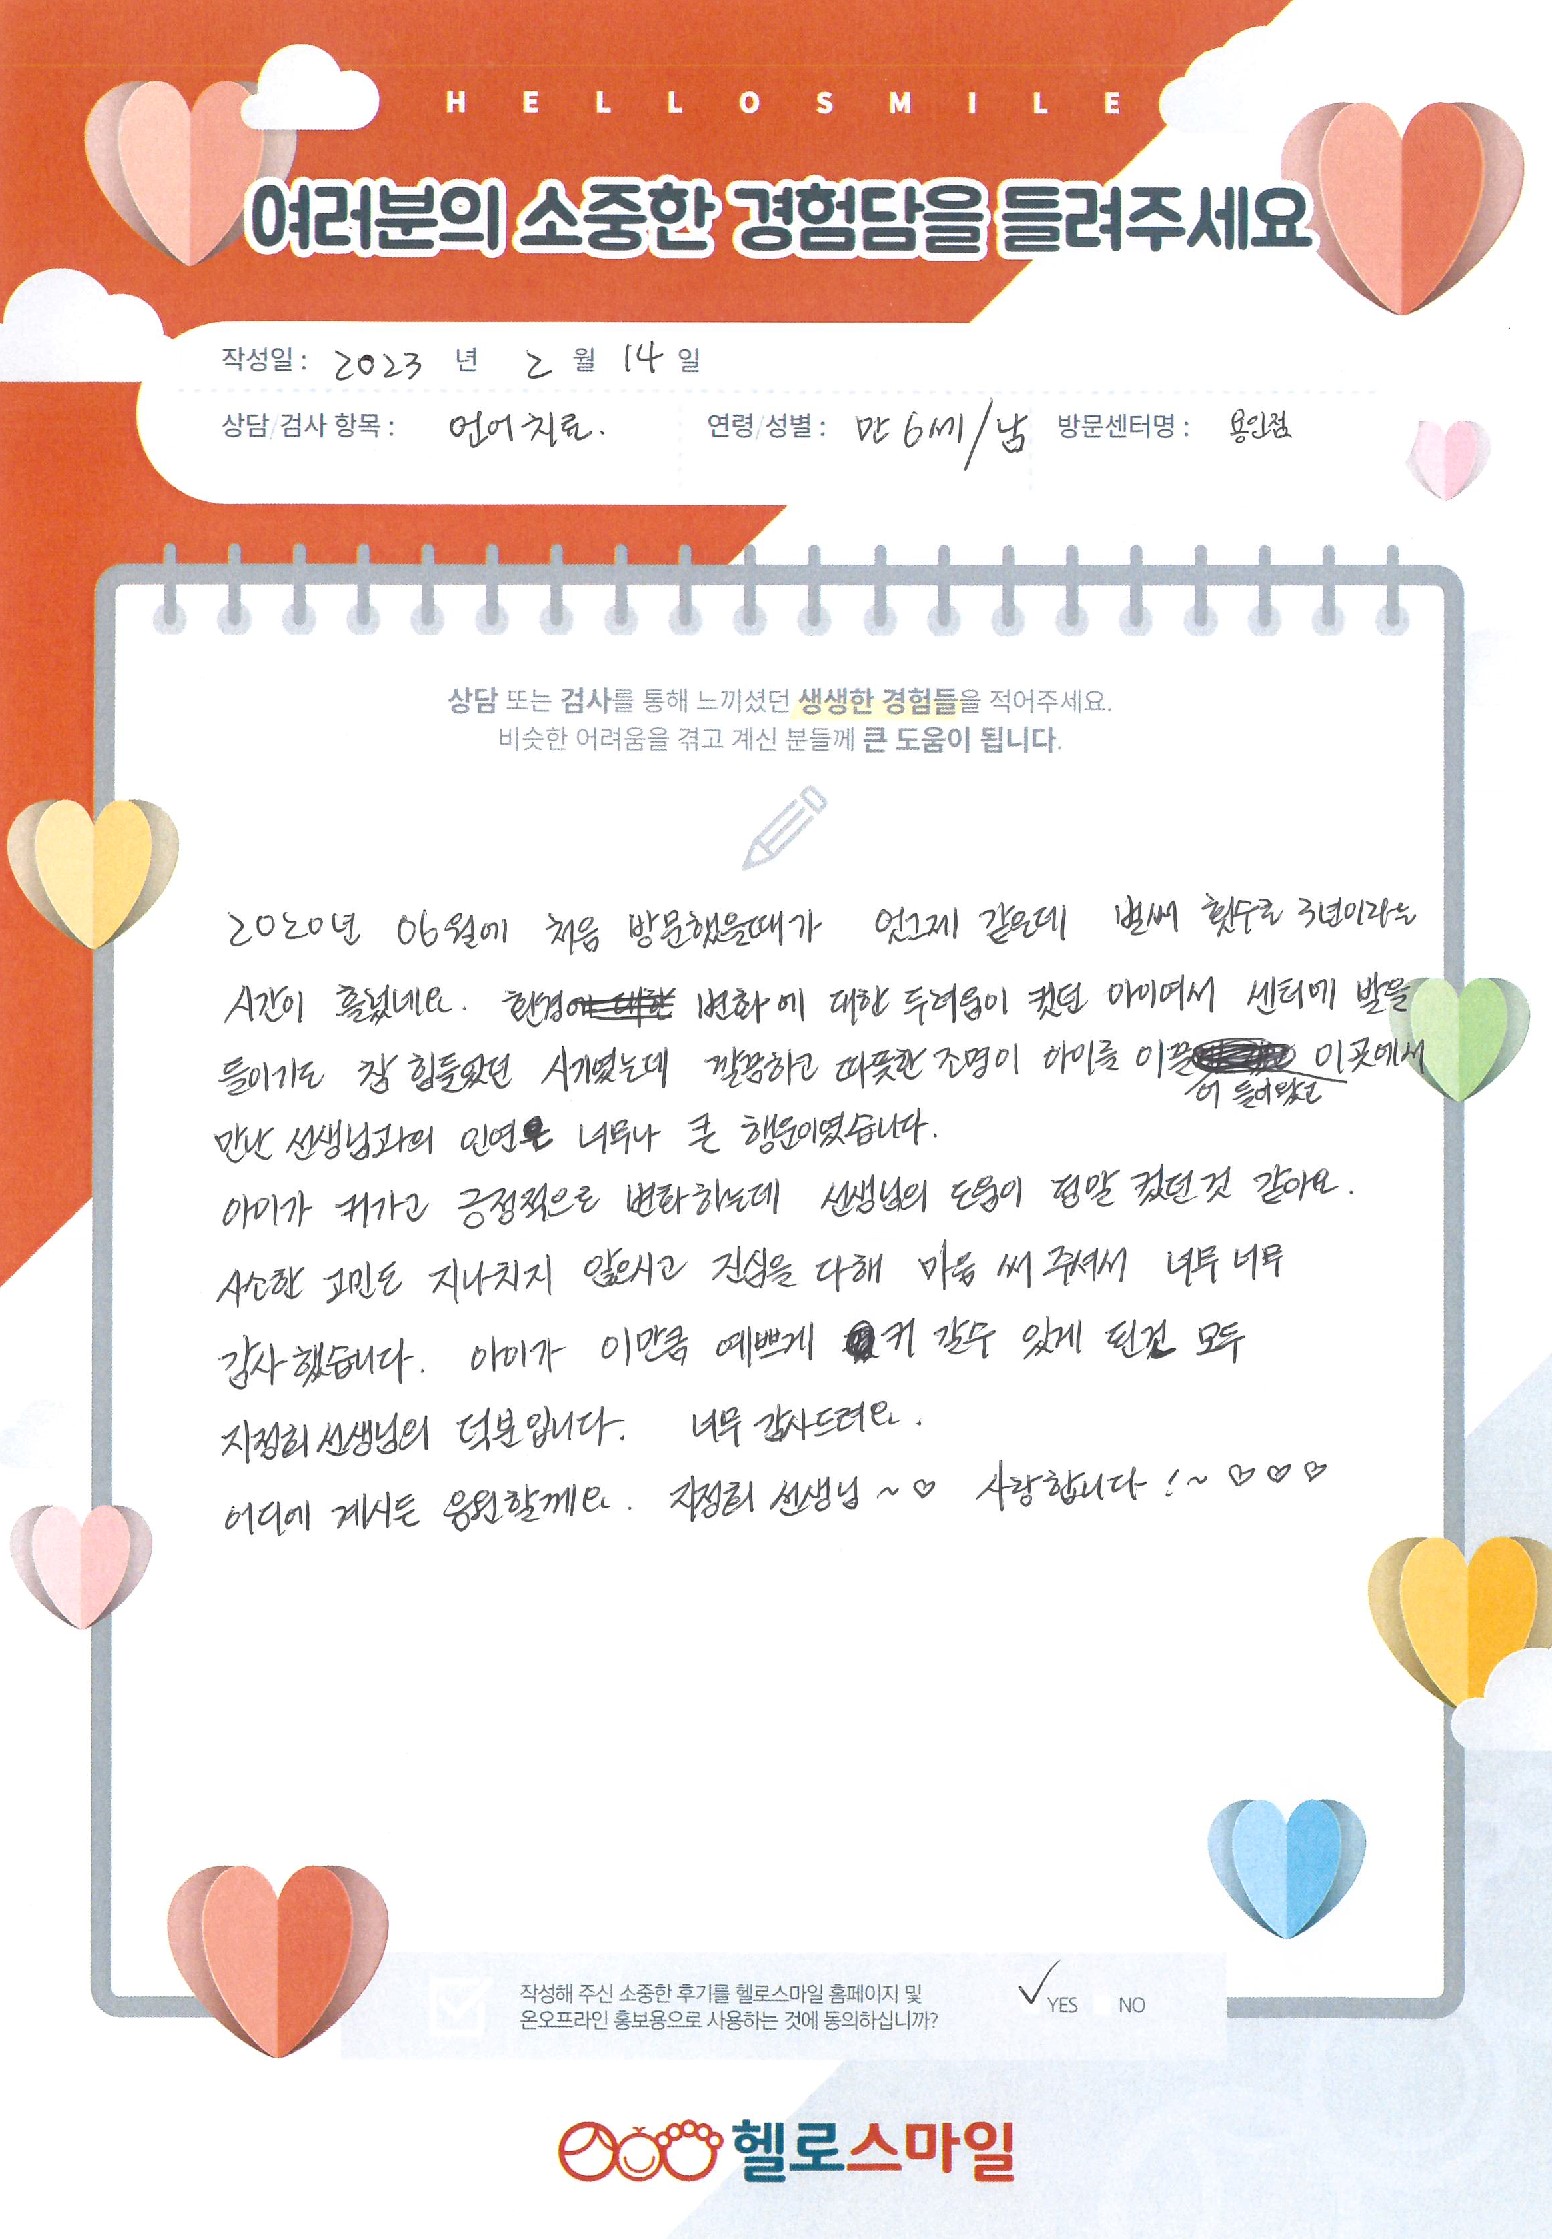 HELLOSMILE
여러분의 소중한 경험담을 들려주세요
작성일 : 2023 년 2 월 14 일
상담/검사 항목 : 언어치료. 연령/성별 : 만 6세/남 방문센터명 : 용인점
상담 또는 검사를 통해 느끼셨던 생생한 경험들을 적어주세요.
비슷한 어려움을 겪고 계신 분들께 큰 도움이 됩니다.
2020년 06월에 처음 방문했을때가 엊그제 같은데 벌써 횟수로 3년이라는
시간이 흘렀네요. 환경 변화에 대한 두려움이 컸던 아이여서 센터에 발을
들이기도 참 힘들었던 시기였는데 깔끔하고 따뜻한 조명이 아이를 이끌어 들어왔고 이곳에서
만난 선생님과의 인연은 너무나 큰 행운이였습니다.
아이가 커가고 긍정적으로 변화하는데 선생님의 도움이 정말 컸던것 같아요.
사소한 고민도 지나치지 않으시고 진심을 다해 마음 써 주셔서 너무너무
감사했습니다. 아이가 이만큼 예쁘게 커 갈수 있게 된건 모두
지정희 선생님의 덕분입니다. 너무 감사드려요.
어디에 계시든 응원할께요. 지정희 선생님~♡ 사랑합니다!~♡♡♡
작성해 주신 소중한 후기를 헬로스마일 홈페이지 및
온오프라인 홍보용으로 사용하는 것에 동의하십니까? ✓ YES NO
헬로스마일